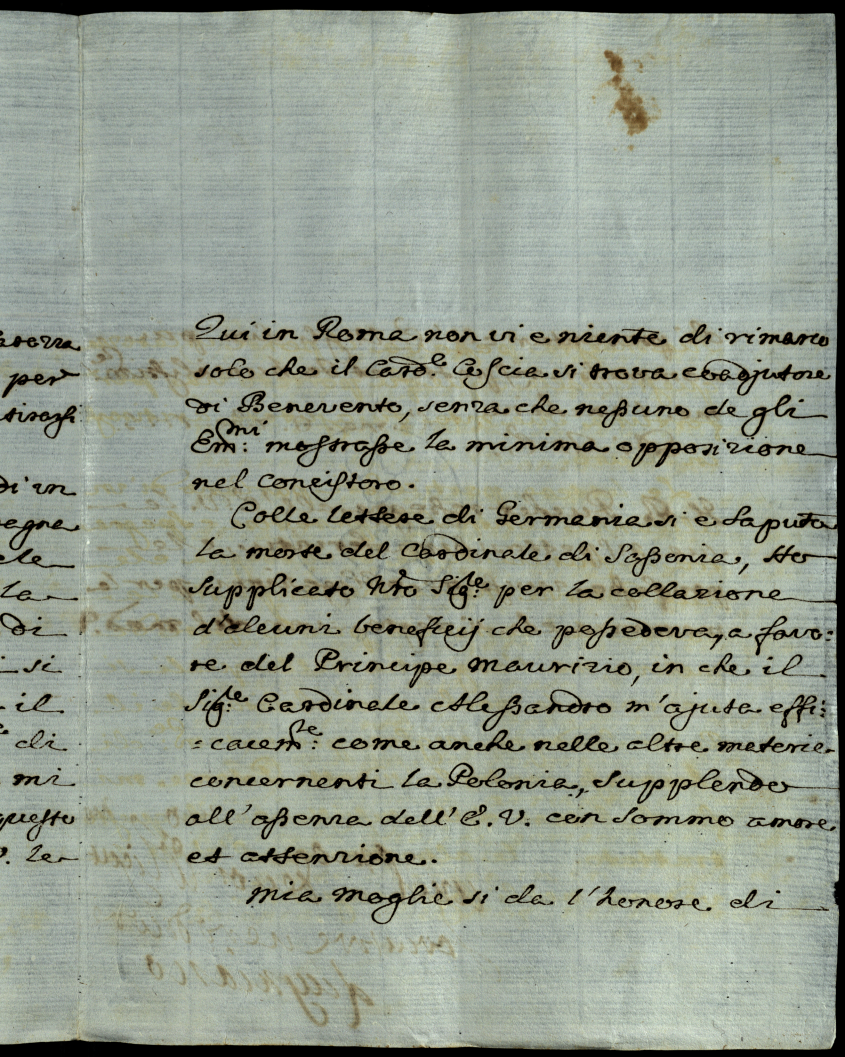 arezza
per
tirarsi
di un
pagna
cle
la
di
si
il
di
mi
questo
V. le
Qui in Roma non vi e niente di rimarco
solo che il Card.e Coscia si trova coadjutore
di Benevento, senza che neßuno de gli
Em:mi mostraße la minima opposizione
nel concistoro.
Colle lettere di Germania si e saputa
la morte del Cardinale di Saßonia, Ho
supplicato Nro Sig:re per la collazione
d'alcuni beneficij che poßedeva, a favo:
re del Principe Maurizio, in che il
Sig:re Cardinale Aleßandro m'ajuta effi:
:cacem:te come anche nelle altre materie
concernenti la Polonia, supplendo
all'aßenza dell'E. V. con sommo amore
et attenzione.
Mia moglie si da l'honore di